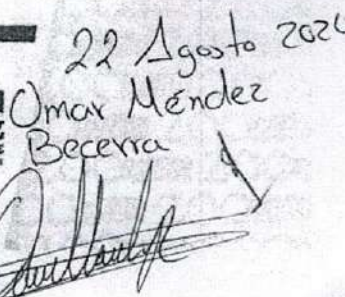 22 Agosto 2024
Omar Méndez
Becerra